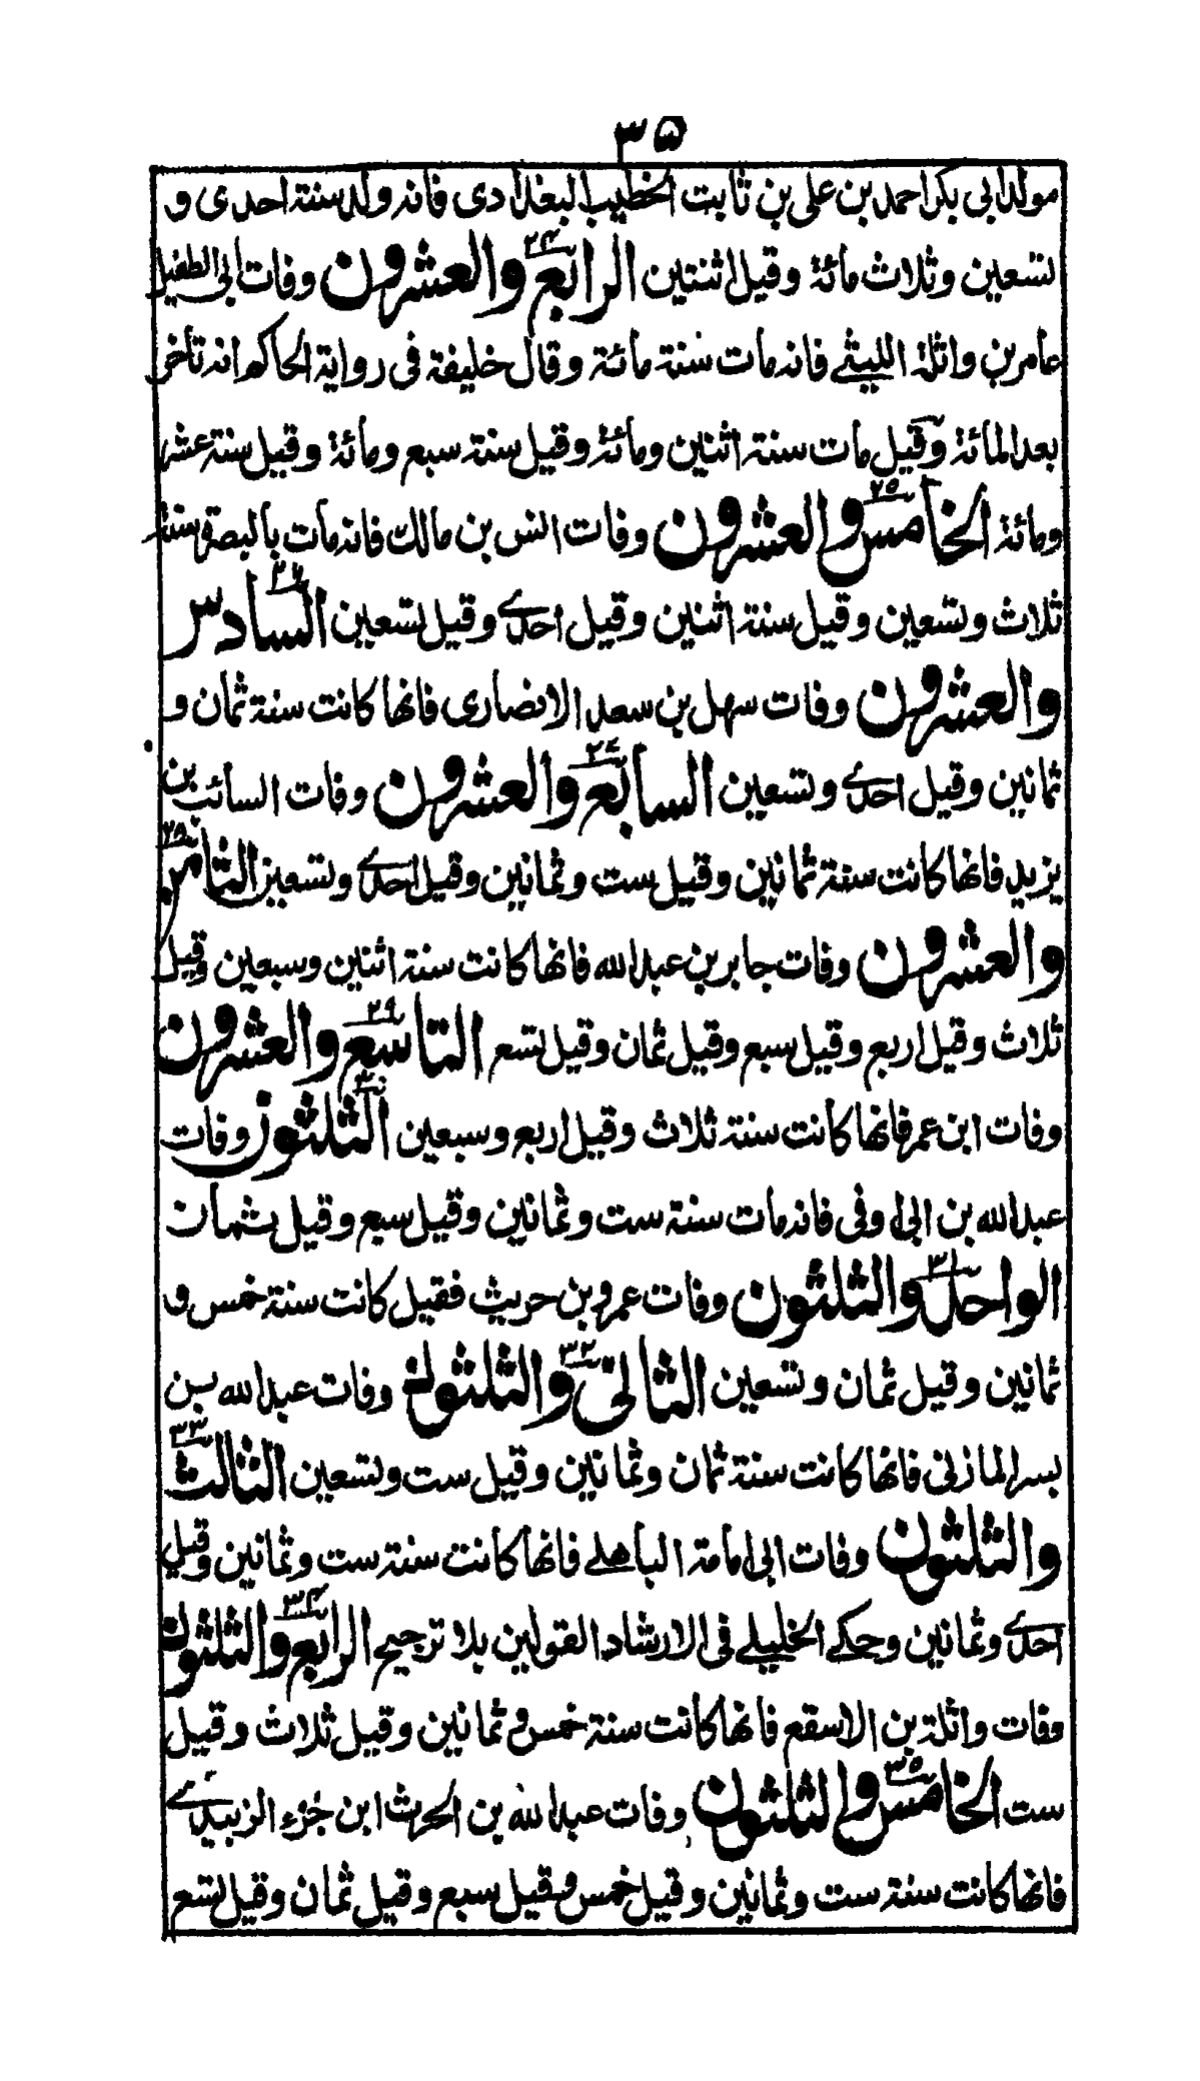 ٣٥
مولد ابی بکر احمد بن علی بن ثابت الخطیب البغدادی فانه ولد سنة احدی و
تسعین وثلاث مائة وقیل اثنتین الرابع والعشرون ٢٤ وفات ابی الطفیل
عامر بن واثلة اللیثے فانه مات سنة مائة وقال خلیفة فی روایة الحاکم انه تأخر
بعد المائة وقیل مات سنة اثنین ومائة وقیل سنة سبع ومائة وقیل سنة عشر
ومائة الخامس والعشرون ٢٥ وفات انس بن مالك فانه مات بالبصرة سنة
ثلاث وتسعین وقیل سنة اثنین وقیل احدے وقیل تسعین السادس ٢٦
والعشرون وفات سهل بن سعد الانصاری فانها کانت سنة ثمان و
ثمانین وقیل احدے وتسعین السابع والعشرون ٢٧ وفات السائب بن
یزید فانها کانت سنة ثمانین وقیل ست وثمانین وقیل احدے وتسعین الثامن ٢٨
والعشرون وفات جابر بن عبدالله فانها کانت سنة اثنین وسبعین وقیل
ثلاث وقیل اربع وقیل سبع وقیل ثمان وقیل تسع التاسع والعشرون ٢٩
وفات ابن عمر فانها کانت سنة ثلاث وقیل اربع وسبعین الثلثون ٣٠ وفات
عبدالله بن ابی اوفی فانه مات سنة ست وثمانین وقیل سبع وقیل بثمان
الواحد والثلثون ٣١ وفات عمرو بن حریث فقیل کانت سنة خمس و
ثمانین وقیل ثمان وتسعین الثانی والثلثون ٣٢ وفات عبدالله بن
بسر المازنی فانها کانت سنة ثمان وثمانین وقیل ست وتسعین الثالث ٣٣
والثلثون وفات ابی امامة الباهلے فانها کانت سنة ست وثمانین وقیل
احدے وثمانین وحکے الخلیلے فی الارشاد القولین بلا ترجیح الرابع والثلثون ٣٤
وفات واثلة بن الاسقع فانها کانت سنة خمس وثمانین وقیل ثلاث وقیل
ست الخامس والثلثون ٣٥ وفات عبدالله بن الحرث ابن جزء الزبیدے
فانها کانت سنة ست وثمانین وقیل خمس وقیل سبع وقیل ثمان وقیل تسع